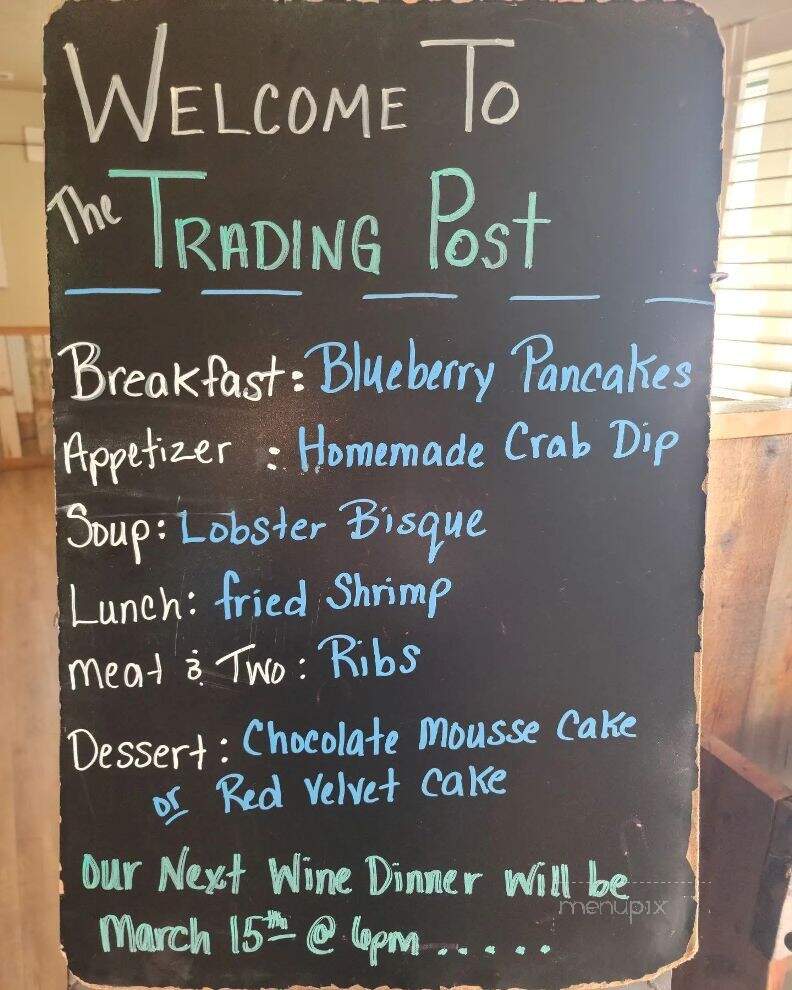 WELCOME TO
The TRADING Post
Breakfast: Blueberry Pancakes
Appetizer : Homemade Crab Dip
Soup: Lobster Bisque
Lunch: fried Shrimp
meat & Two: Ribs
Dessert: Chocolate Mousse Cake
or Red Velvet Cake
Our Next Wine Dinner Will be
menupix
March 15th @ 6pm .....